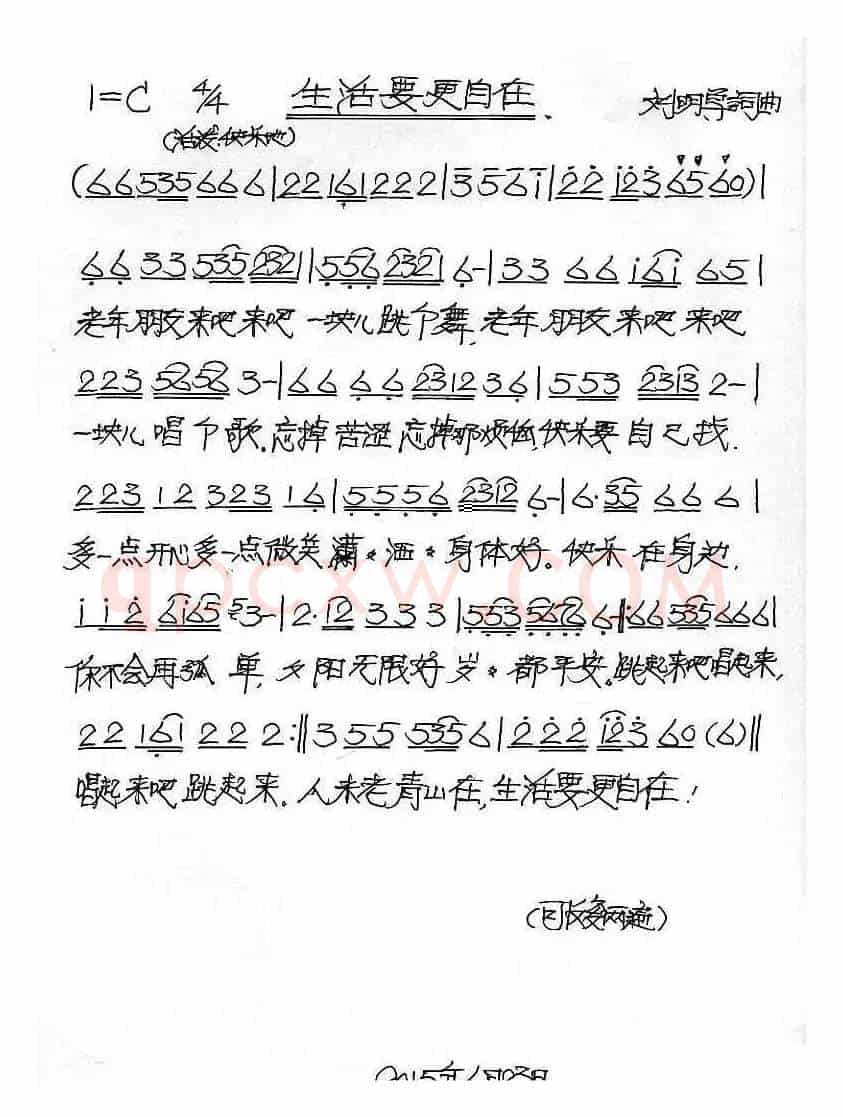 1=C 4/4 生活要更自在. 刘明导詞曲
(活泼.快乐地)
(6 6 5 3 5 6 6 6|2 2 1 6 1 2 2 2|3 5 6 i|2 2 i 2 3 6 5 6 0)|
6 6 3 3 5 3 5 2 3 2 1|5 5 6 2 3 2 1 6 -|3 3 6 6 i 6 i 6 5|
老年朋友来吧来吧 一块儿跳个舞,老年朋友来吧来吧
2 2 3 5 6 5 6 3 -|6 6 6 6 2 3 1 2 3 6|5 5 3 2 3 1 3 2 -|
一块儿唱个歌.忘掉苦涩忘掉那烦恼,快乐要自己找.
2 2 3 1 2 3 2 3 1 6|5 5 5 6 2 3 1 2 6 -|6· 3 5 6 6 6|
多一点开心多一点微笑潇洒身体好。快乐在身边,
qpcxw.com
i i 2 6 i 6 5 3 -|2· 1 2 3 3 3|5 5 3 5 6 7 6 6 -|:6 6 5 3 5 6 6 6|
你不会再孤单,夕阳无限好岁岁都平安。跳起来吧唱起来,
2 2 1 6 1 2 2 2:‖3 5 5 5 3 5 6|2 2 2 i 2 3 6 0 (6)‖
唱起来吧跳起来.人未老青山在,生活要更自在!
(可反复两遍)